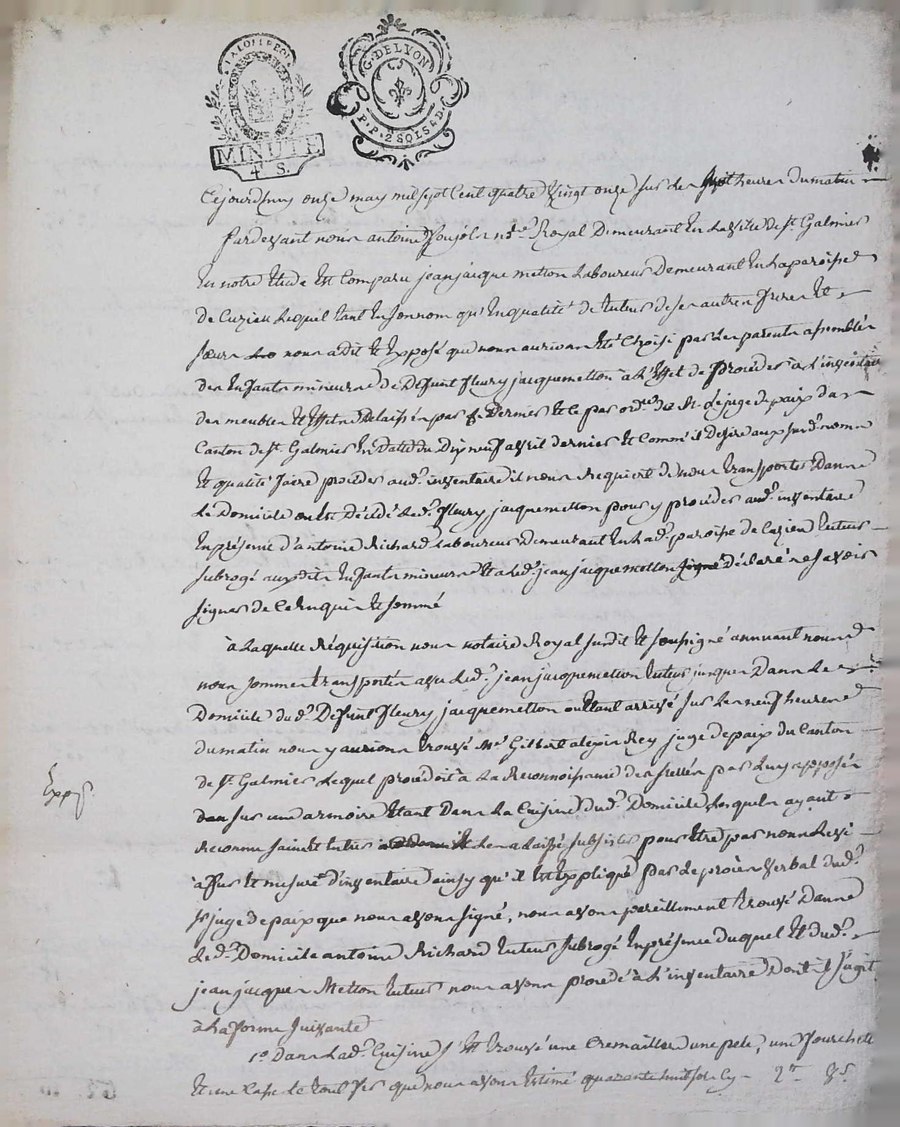 LA LOI LE ROI
MINUTE
4 S.
G. DE LYON
P.P. 2 SOLS 8 D.
Cejourdhuy onze may mil sept cent quatre vingt onze sur les huit heures du matin
Pardevant nous antoine Poujol n.re Royal Demeurant En la ville de St. Galmier
En notre Etude Est Comparu jean jacque metton Laboureur Demeurant En la paroisse
de Cuzieu Lequel tant En son nom qu'En qualité de tuteur de ses autres freres Et
soeurs nous a dit Et Exposé que nous aurions Eté Choisi par les parents assemblés
des Enfants mineurs de Defunt fleury jacque metton à L'Effet de proceder à L'inventaire
des meubles Et Effets Delaissés par ce Dernier Et ce par ord.ce de Mr. Le juge de paix du
Canton de St. Galmier En Datte du Dix neuf avril dernier Et Comm'il Desire aux susd. noms
Et qualité faire proceder aud. inventaire il nous Requiert de nous transporter Dans
Le Domicile ou Est Décédé Led. fleury jacque metton pour y proceder aud. inventaire
En présence d'antoine Richard Laboureur Demeurant En Lad. paroisse de Cuzieu tuteur
subrogé auxdits Enfants mineurs Et a Led. jean jacque metton déclaré ne savoir
signer de ce Enquis Et sommé
à Laquelle Réquisition nous notaire Royal susdit Et soussigné annuant nous
nous sommes transportés avec Led. jean jacque metton tuteur jusques Dans Le
Domicile dud. Defunt fleury jacque metton ou Etant arrivé sur Les neuf heures
du matin nous y aurions trouvé Me. Gilbert alexis Rey juge de paix du Canton
de St. Galmier Lequel procedoit à La Reconnoissance des scellés par Luy apposés
sur une armoire Etant Dans La Cuisine dud. Domicile Lesquels ayant
Reconnu sains Et Entiers Les a laissé subsister pour Etre par nous Levé
à fur Et mesure d'inventaire ainsy qu'il Est Expliqué par Le procès verbal dud.
Sr. juge de paix que nous avons signé, nous avons pareillement trouvé Dans
Led. Domicile antoine Richard tuteur subrogé En présence duquel Et dud.
jean jacques Metton tuteur nous avons procedé à L'inventaire Dont il s'agit
à La forme suivante
Exp.
1.° Dans Lad. Cuisine s'Est trouvé une Cremaillere une pele, une fourchete
Et une Cape Le tout fer que nous avons Estimé quarante huit sols Cy - 2tt 8s.